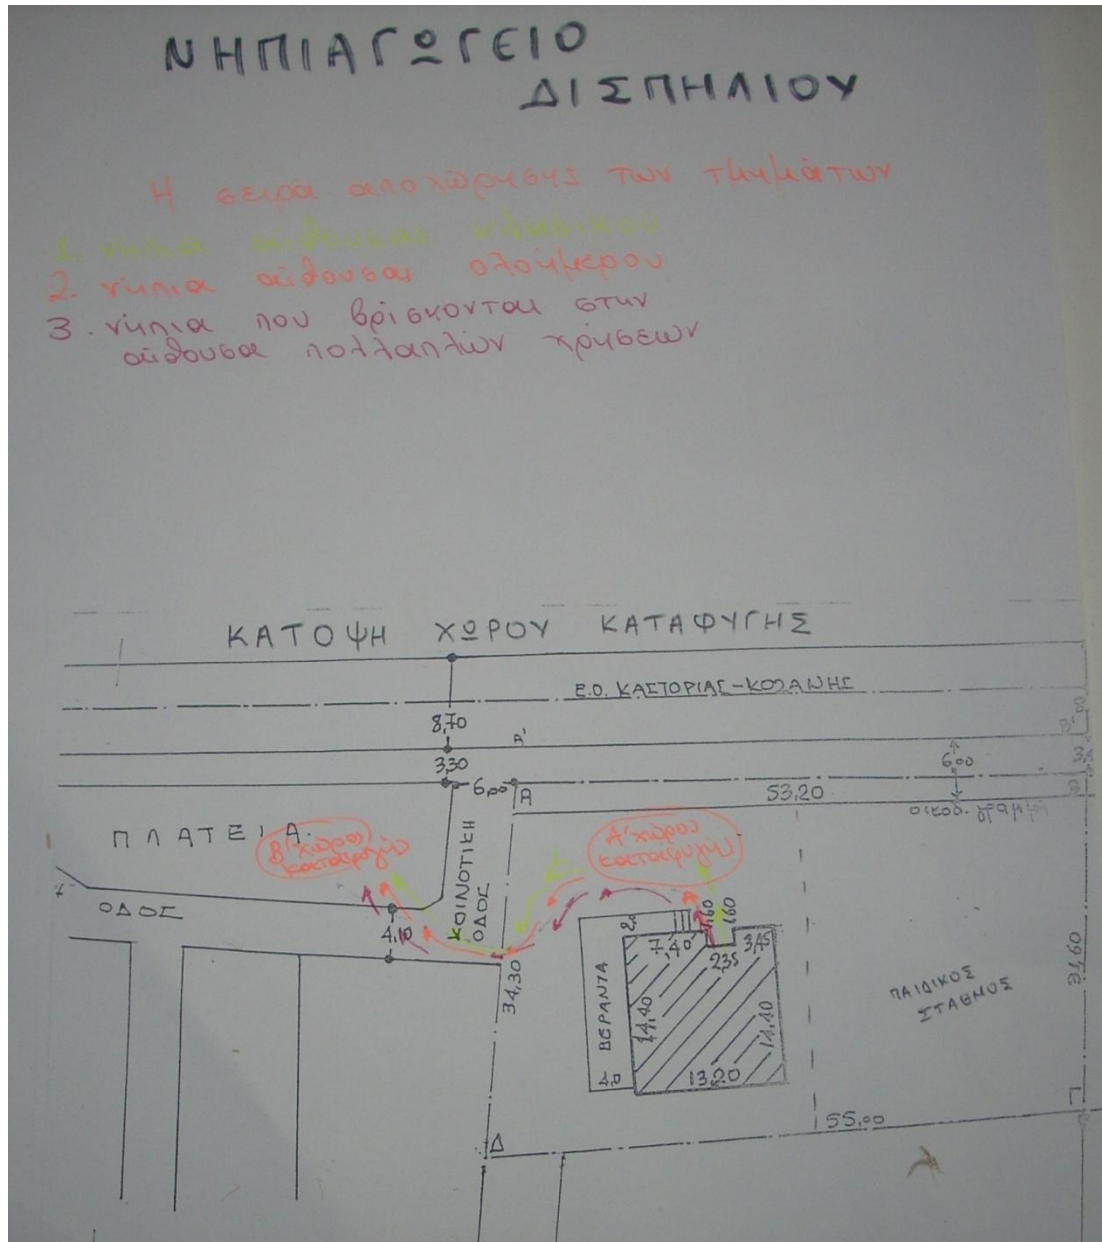 ΝΗΠΙΑΓΩΓΕΙΟ
ΔΙΣΠΗΛΙΟΥ
Η σειρά αποχώρησης των τμημάτων
1. νήπια αίθουσας κλασικού
2. νήπια αίθουσας ολοήμερου
3. νήπια που βρίσκονται στην
αίθουσα πολλαπλών χρήσεων
ΚΑΤΟΨΗ ΧΩΡΟΥ ΚΑΤΑΦΥΓΗΣ
Ε.Ο. ΚΑΣΤΟΡΙΑΣ-ΚΟΖΑΝΗΣ
8,70
Α'
3,30
6,00
Α
53,20
6,00
οικοδ. γραμμή
ΠΛΑΤΕΙΑ.
Β' χώρος
καταφυγής
Α' χώρος
καταφυγής
ΚΟΙΝΟΤΙΚΗ
ΟΔΟΣ
ΟΔΟΣ
4,10
34,30
2,0
7,40
1,60
1,60
2,35
3,45
ΒΕΡΑΝΤΑ
14,40
14,40
13,20
ΠΑΙΔΙΚΟΣ
ΣΤΑΘΜΟΣ
Γ
Δ
55,00